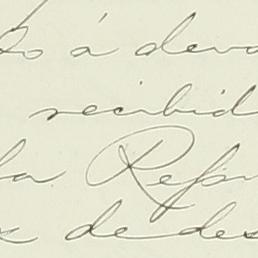 á devo
recibid
la Refor
de des